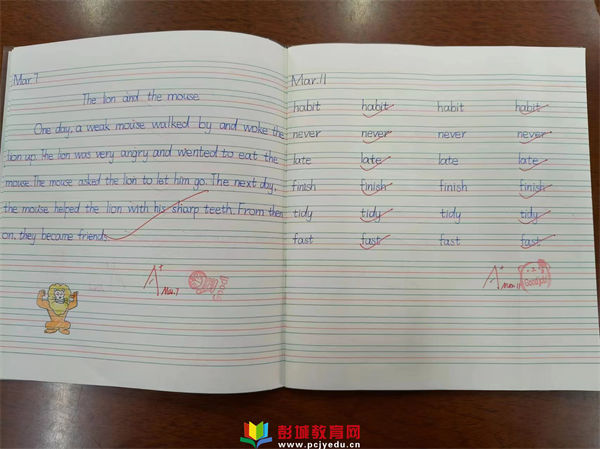 Mar.7
The lion and the mouse
One day, a weak mouse walked by and woke the
lion up. The lion was very angry and wented to eat the
mouse. The mouse asked the lion to let him go. The next day,
the mouse helped the lion with his sharp teeth. From then
on, they became friends.
A+
Mar.7
Good
Mar.11
habit habit habit habit
never never never never
late late late late
finish finish finish finish
tidy tidy tidy tidy
fast fast fast fast
A+
Mar.11
Good job!
彭城教育网
www.pcjyedu.cn